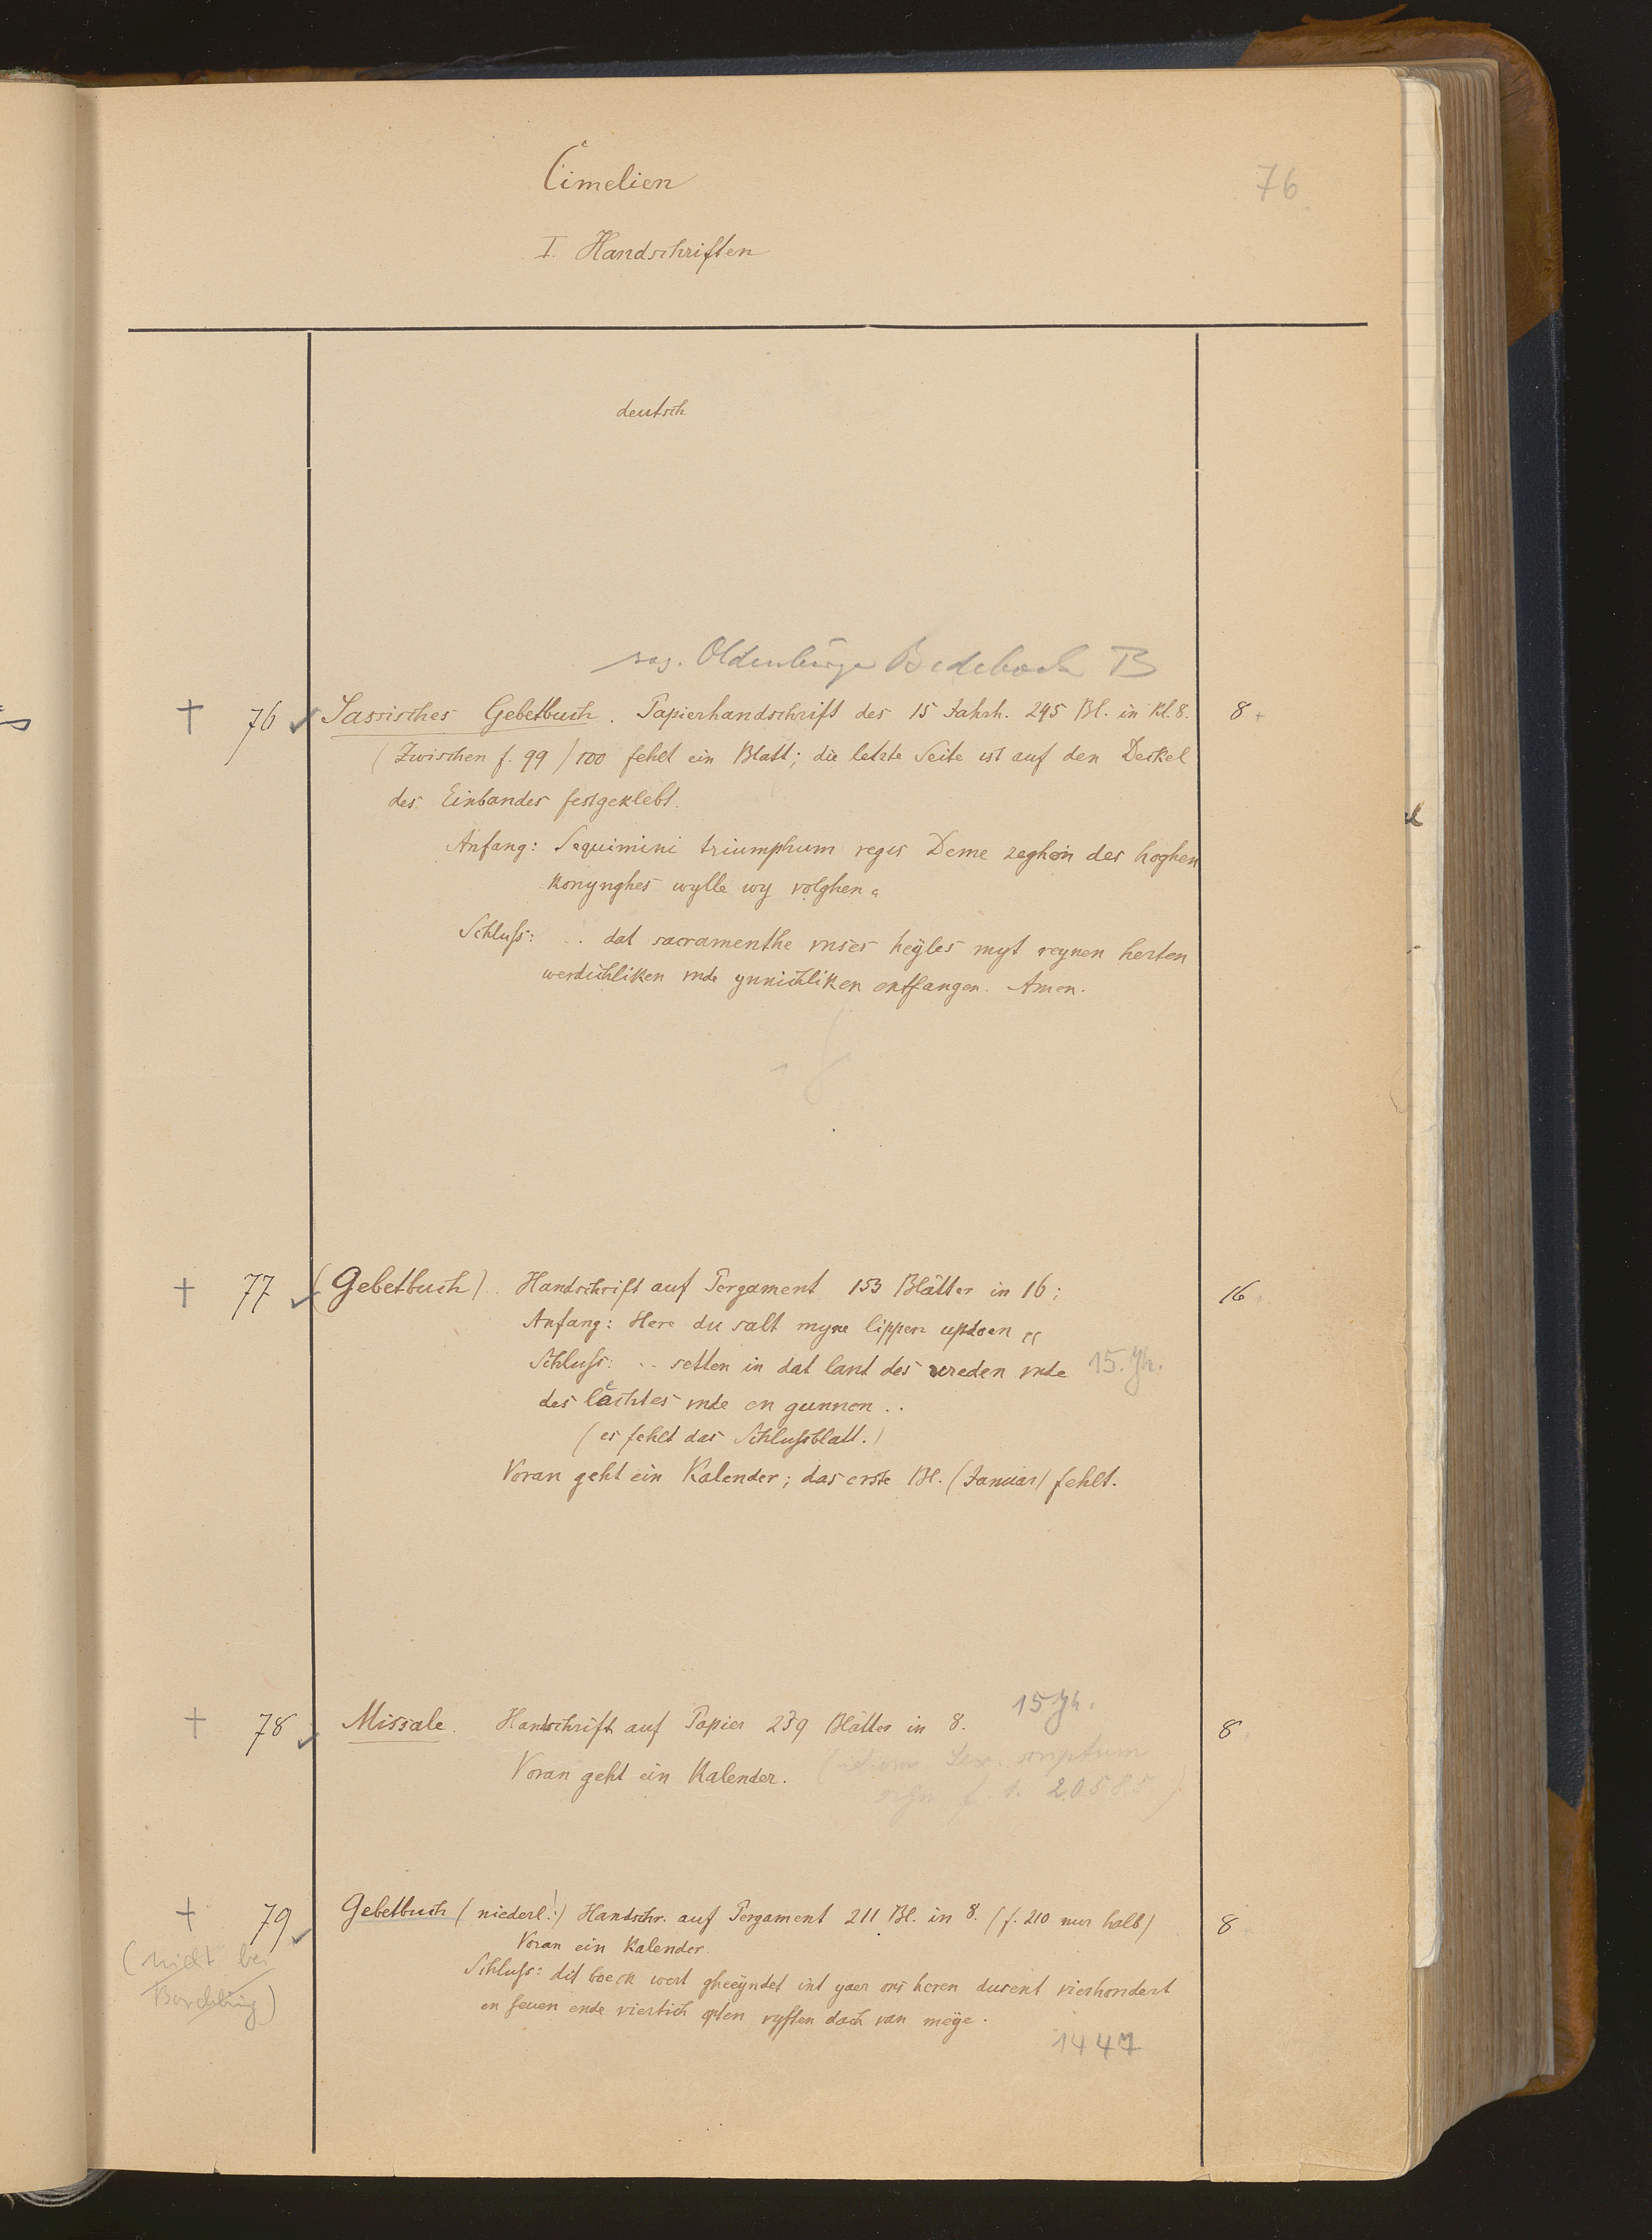 Cimelien
76
I. Handschriften
deutsch
sog. Oldenburger Bedeboek B
† 76 ✓ Sassisches Gebetbuch. Papierhandschrift des 15 Jahrh. 295 Bl. in Kl. 8. 8
(Zwischen f. 99/100 fehlt ein Blatt; die letzte Seite ist auf den Deckel
des Einbandes festgeklebt.
Anfang: Sequimini triumphum regis Deme zeghen des hoghen
konynghes wylle wy volghen
Schluſs: .. dat sacramenthe vnses heyles myt reynen herten
werdichliken vnde ynnichliken entfangen. Amen.
† 77 ✓ (Gebetbuch). Handschrift auf Pergament 153 Blätter in 16; 16
Anfang: Here du salt myne lippen updoen
Schluſs: .. setten in dat lant des vreden vnde 15. Jh.
des lichtes vnde en gunnen ..
(es fehlt das Schluſsblatt.)
Voran geht ein Kalender; das erste Bl. (Januar) fehlt.
15 Jh.
† 78 ✓ Missale. Handschrift auf Papier 239 Blätter in 8. 8
Voran geht ein Kalender.
scriptum
† 79 ✓ Gebetbuch (niederl.!) Handschr. auf Pergament 211 Bl. in 8. (f. 210 nur halb) 8
Voran ein Kalender.
(nicht bei
Borchling)
Schluſs: dit boeck wert gheeyndet int yaer ons heren dusent vierhondert
en seuen ende viertich opten vyften dach van meye.
1447